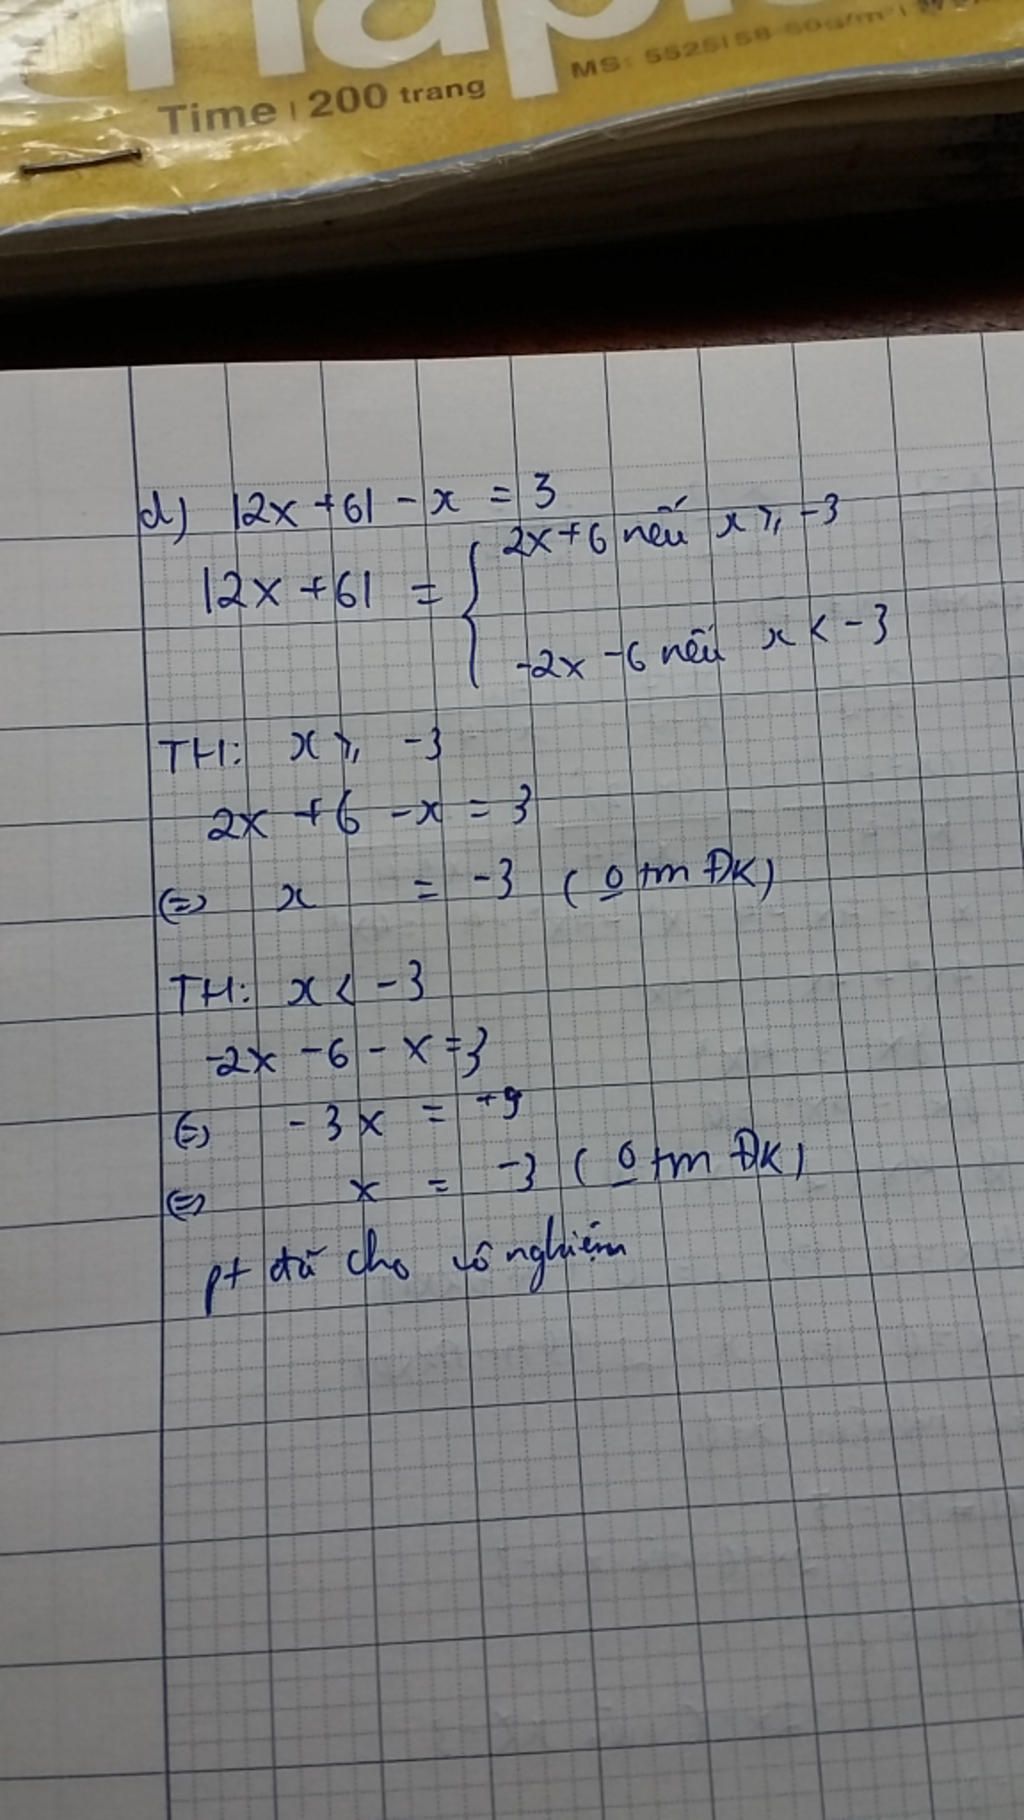 Time | 200 trang
MS: 5525158 60g/m²
d) |2x+6| - x = 3
|2x+6| = { 2x+6 nếu x ⩾ -3
-2x-6 nếu x < -3
TH: x ⩾ -3
2x + 6 - x = 3
⇔ x = -3 ( O̲ tm ĐK)
TH: x < -3
-2x - 6 - x = 3
⇔ -3x = +9
⇔ x = -3 ( O̲ tm ĐK)
pt đã cho vô nghiệm